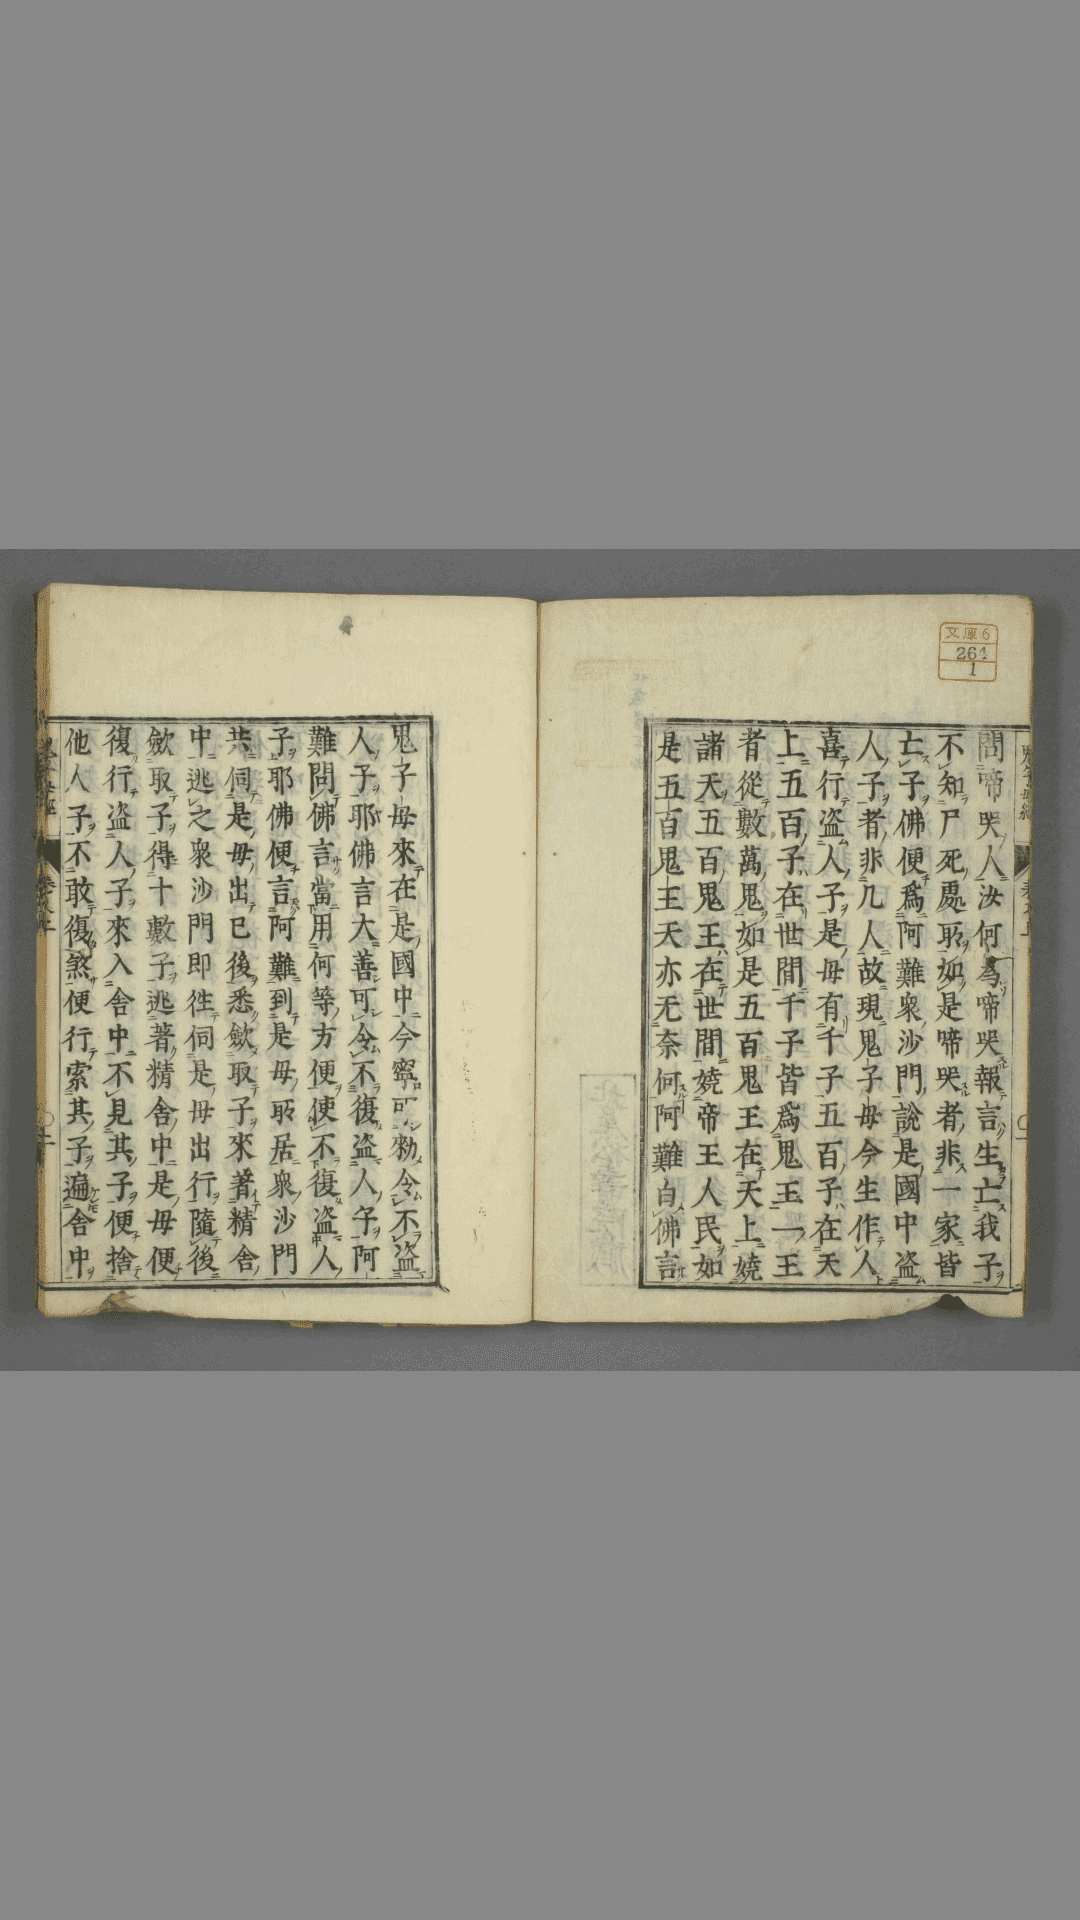 文庫6
264
1
問帝哭人汝何為啼哭報言生亡我子
不知尸死處所如是啼哭者非一家皆
亡子佛便為阿難衆沙門說是國中盗
人子者非凡人故現鬼子母今生作人
喜行盗人子是母有千子五百子在天
上五百子在世間千子皆為鬼王一王
者從數萬鬼如是五百鬼王在天上嬈
諸天五百鬼王在世間嬈帝王人民如
是五百鬼王天亦无奈何阿難白佛言
鬼子母來在是國中今寧可勑令不盗
人子耶佛言大善可令不復盗人子阿
難問佛言當用何等方便使不復盗人
子耶佛便言阿難到是母所居衆沙門
共伺是母出已後悉斂取子來著精舍
中逃之衆沙門即徃伺是母出行隨後
斂取子得十數子逃著精舍中是母便
復行盗人子來入舍中不見其子便捨
他人子不敢復煞便行索其子遍舍中